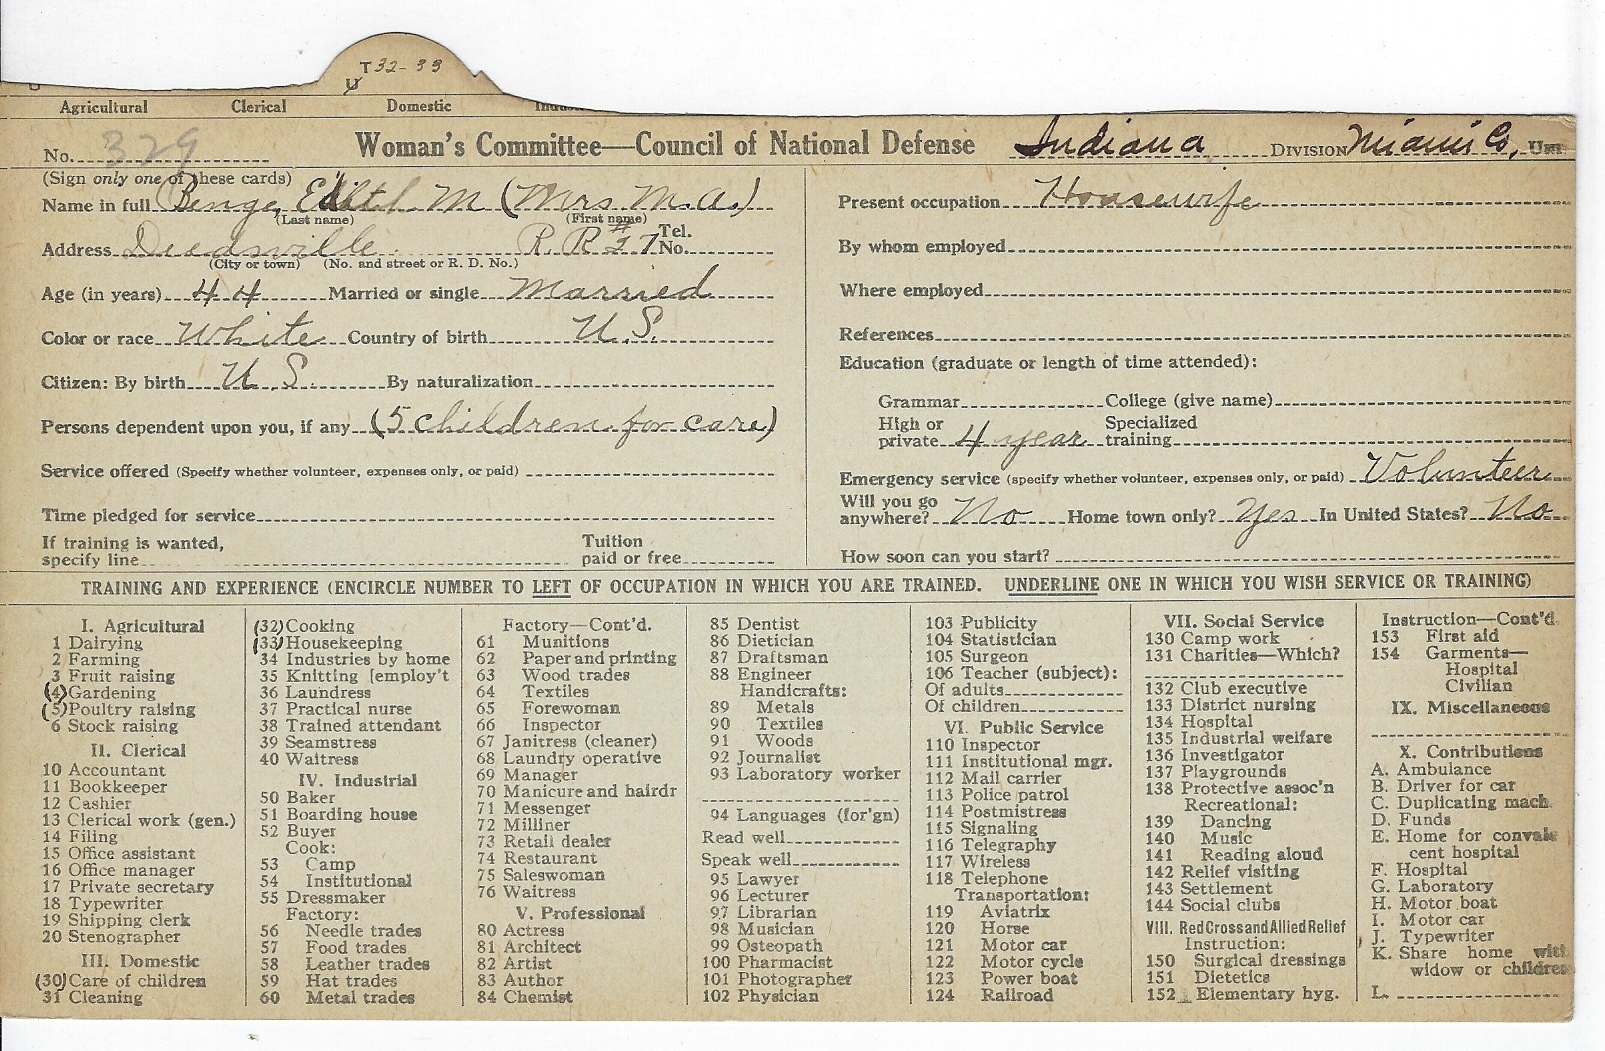 T 32-33
U
Agricultural Clerical Domestic
No. 329 Woman's Committee—Council of National Defense Indiana DIVISION Miami Co. Unit
(Sign only one of these cards)
Name in full Benge, Edith M (Mrs M.A.)
(Last name) (First name)
Address Deedsville R.R. #27 Tel. No.
(City or town) (No. and street or R. D. No.)
Age (in years) 44 Married or single Married
Color or race White Country of birth U.S.
Citizen: By birth U.S. By naturalization
Persons dependent upon you, if any (5 children for care)
Service offered (Specify whether volunteer, expenses only, or paid)
Time pledged for service
If training is wanted, specify line Tuition paid or free
Present occupation Housewife
By whom employed
Where employed
References
Education (graduate or length of time attended):
Grammar College (give name)
High or private 4 year Specialized training
Emergency service (specify whether volunteer, expenses only, or paid) Volunteer
Will you go anywhere? No Home town only? Yes In United States? No
How soon can you start?
TRAINING AND EXPERIENCE (ENCIRCLE NUMBER TO LEFT OF OCCUPATION IN WHICH YOU ARE TRAINED. UNDERLINE ONE IN WHICH YOU WISH SERVICE OR TRAINING)
I. Agricultural
1 Dairying
2 Farming
3 Fruit raising
(4) Gardening
(5) Poultry raising
6 Stock raising
II. Clerical
10 Accountant
11 Bookkeeper
12 Cashier
13 Clerical work (gen.)
14 Filing
15 Office assistant
16 Office manager
17 Private secretary
18 Typewriter
19 Shipping clerk
20 Stenographer
III. Domestic
(30) Care of children
31 Cleaning
(32) Cooking
(33) Housekeeping
34 Industries by home
35 Knitting [employ't
36 Laundress
37 Practical nurse
38 Trained attendant
39 Seamstress
40 Waitress
IV. Industrial
50 Baker
51 Boarding house
52 Buyer
Cook:
53 Camp
54 Institutional
55 Dressmaker
Factory:
56 Needle trades
57 Food trades
58 Leather trades
59 Hat trades
60 Metal trades
Factory—Cont'd.
61 Munitions
62 Paper and printing
63 Wood trades
64 Textiles
65 Forewoman
66 Inspector
67 Janitress (cleaner)
68 Laundry operative
69 Manager
70 Manicure and hairdr
71 Messenger
72 Milliner
73 Retail dealer
74 Restaurant
75 Saleswoman
76 Waitress
V. Professional
80 Actress
81 Architect
82 Artist
83 Author
84 Chemist
85 Dentist
86 Dietician
87 Draftsman
88 Engineer
Handicrafts:
89 Metals
90 Textiles
91 Woods
92 Journalist
93 Laboratory worker
94 Languages (for'gn)
Read well
Speak well
95 Lawyer
96 Lecturer
97 Librarian
98 Musician
99 Osteopath
100 Pharmacist
101 Photographer
102 Physician
103 Publicity
104 Statistician
105 Surgeon
106 Teacher (subject):
Of adults
Of children
VI. Public Service
110 Inspector
111 Institutional mgr.
112 Mail carrier
113 Police patrol
114 Postmistress
115 Signaling
116 Telegraphy
117 Wireless
118 Telephone
Transportation:
119 Aviatrix
120 Horse
121 Motor car
122 Motor cycle
123 Power boat
124 Railroad
VII. Social Service
130 Camp work
131 Charities—Which?
132 Club executive
133 District nursing
134 Hospital
135 Industrial welfare
136 Investigator
137 Playgrounds
138 Protective assoc'n
Recreational:
139 Dancing
140 Music
141 Reading aloud
142 Relief visiting
143 Settlement
144 Social clubs
VIII. Red Cross and Allied Relief
Instruction:
150 Surgical dressings
151 Dietetics
152 Elementary hyg.
Instruction—Cont'd.
153 First aid
154 Garments—
Hospital
Civilian
IX. Miscellaneous
X. Contributions
A. Ambulance
B. Driver for car
C. Duplicating mach.
D. Funds
E. Home for convales
cent hospital
F. Hospital
G. Laboratory
H. Motor boat
I. Motor car
J. Typewriter
K. Share home with
widow or children
L.